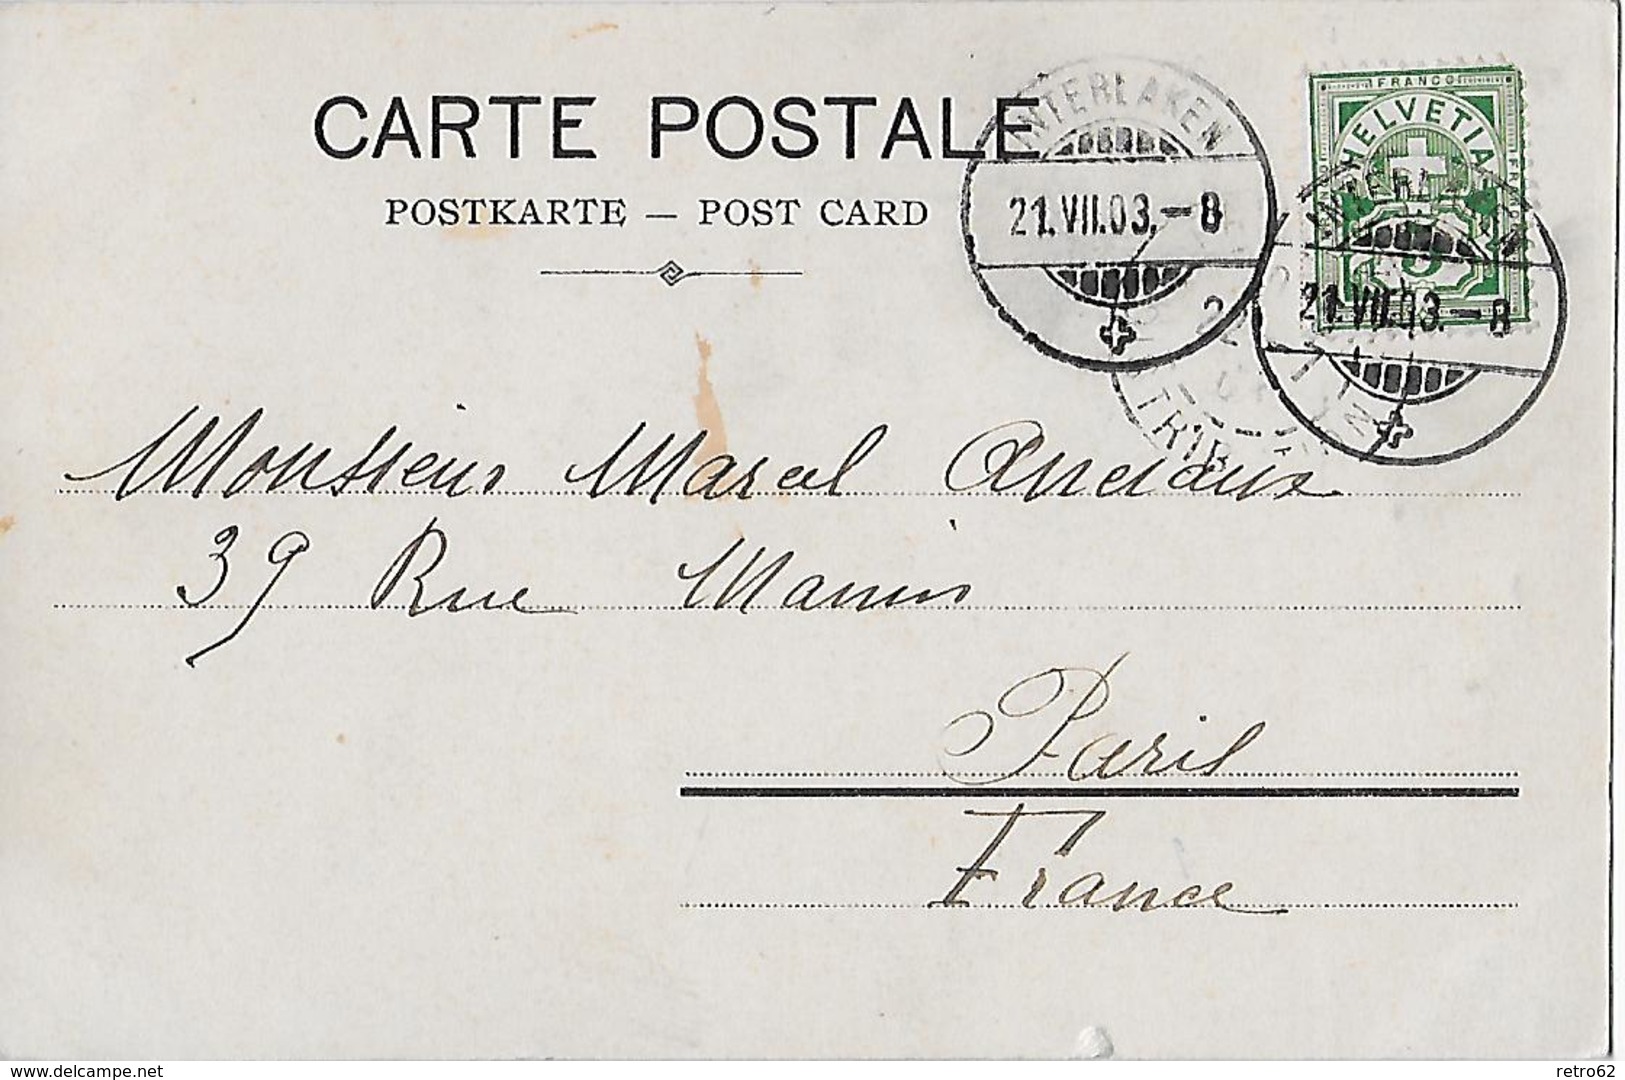 CARTE POSTALE
POSTKARTE — POST CARD
INTERLAKEN
21.VII.03.-8
FRANCO
HELVETIA
5
INTERLAKEN
21.VII.03.-8
DISTRIB
Monsieur Marcel Anciaux
39 Rue Manin
Paris
France
www.delcampe.net
retro62